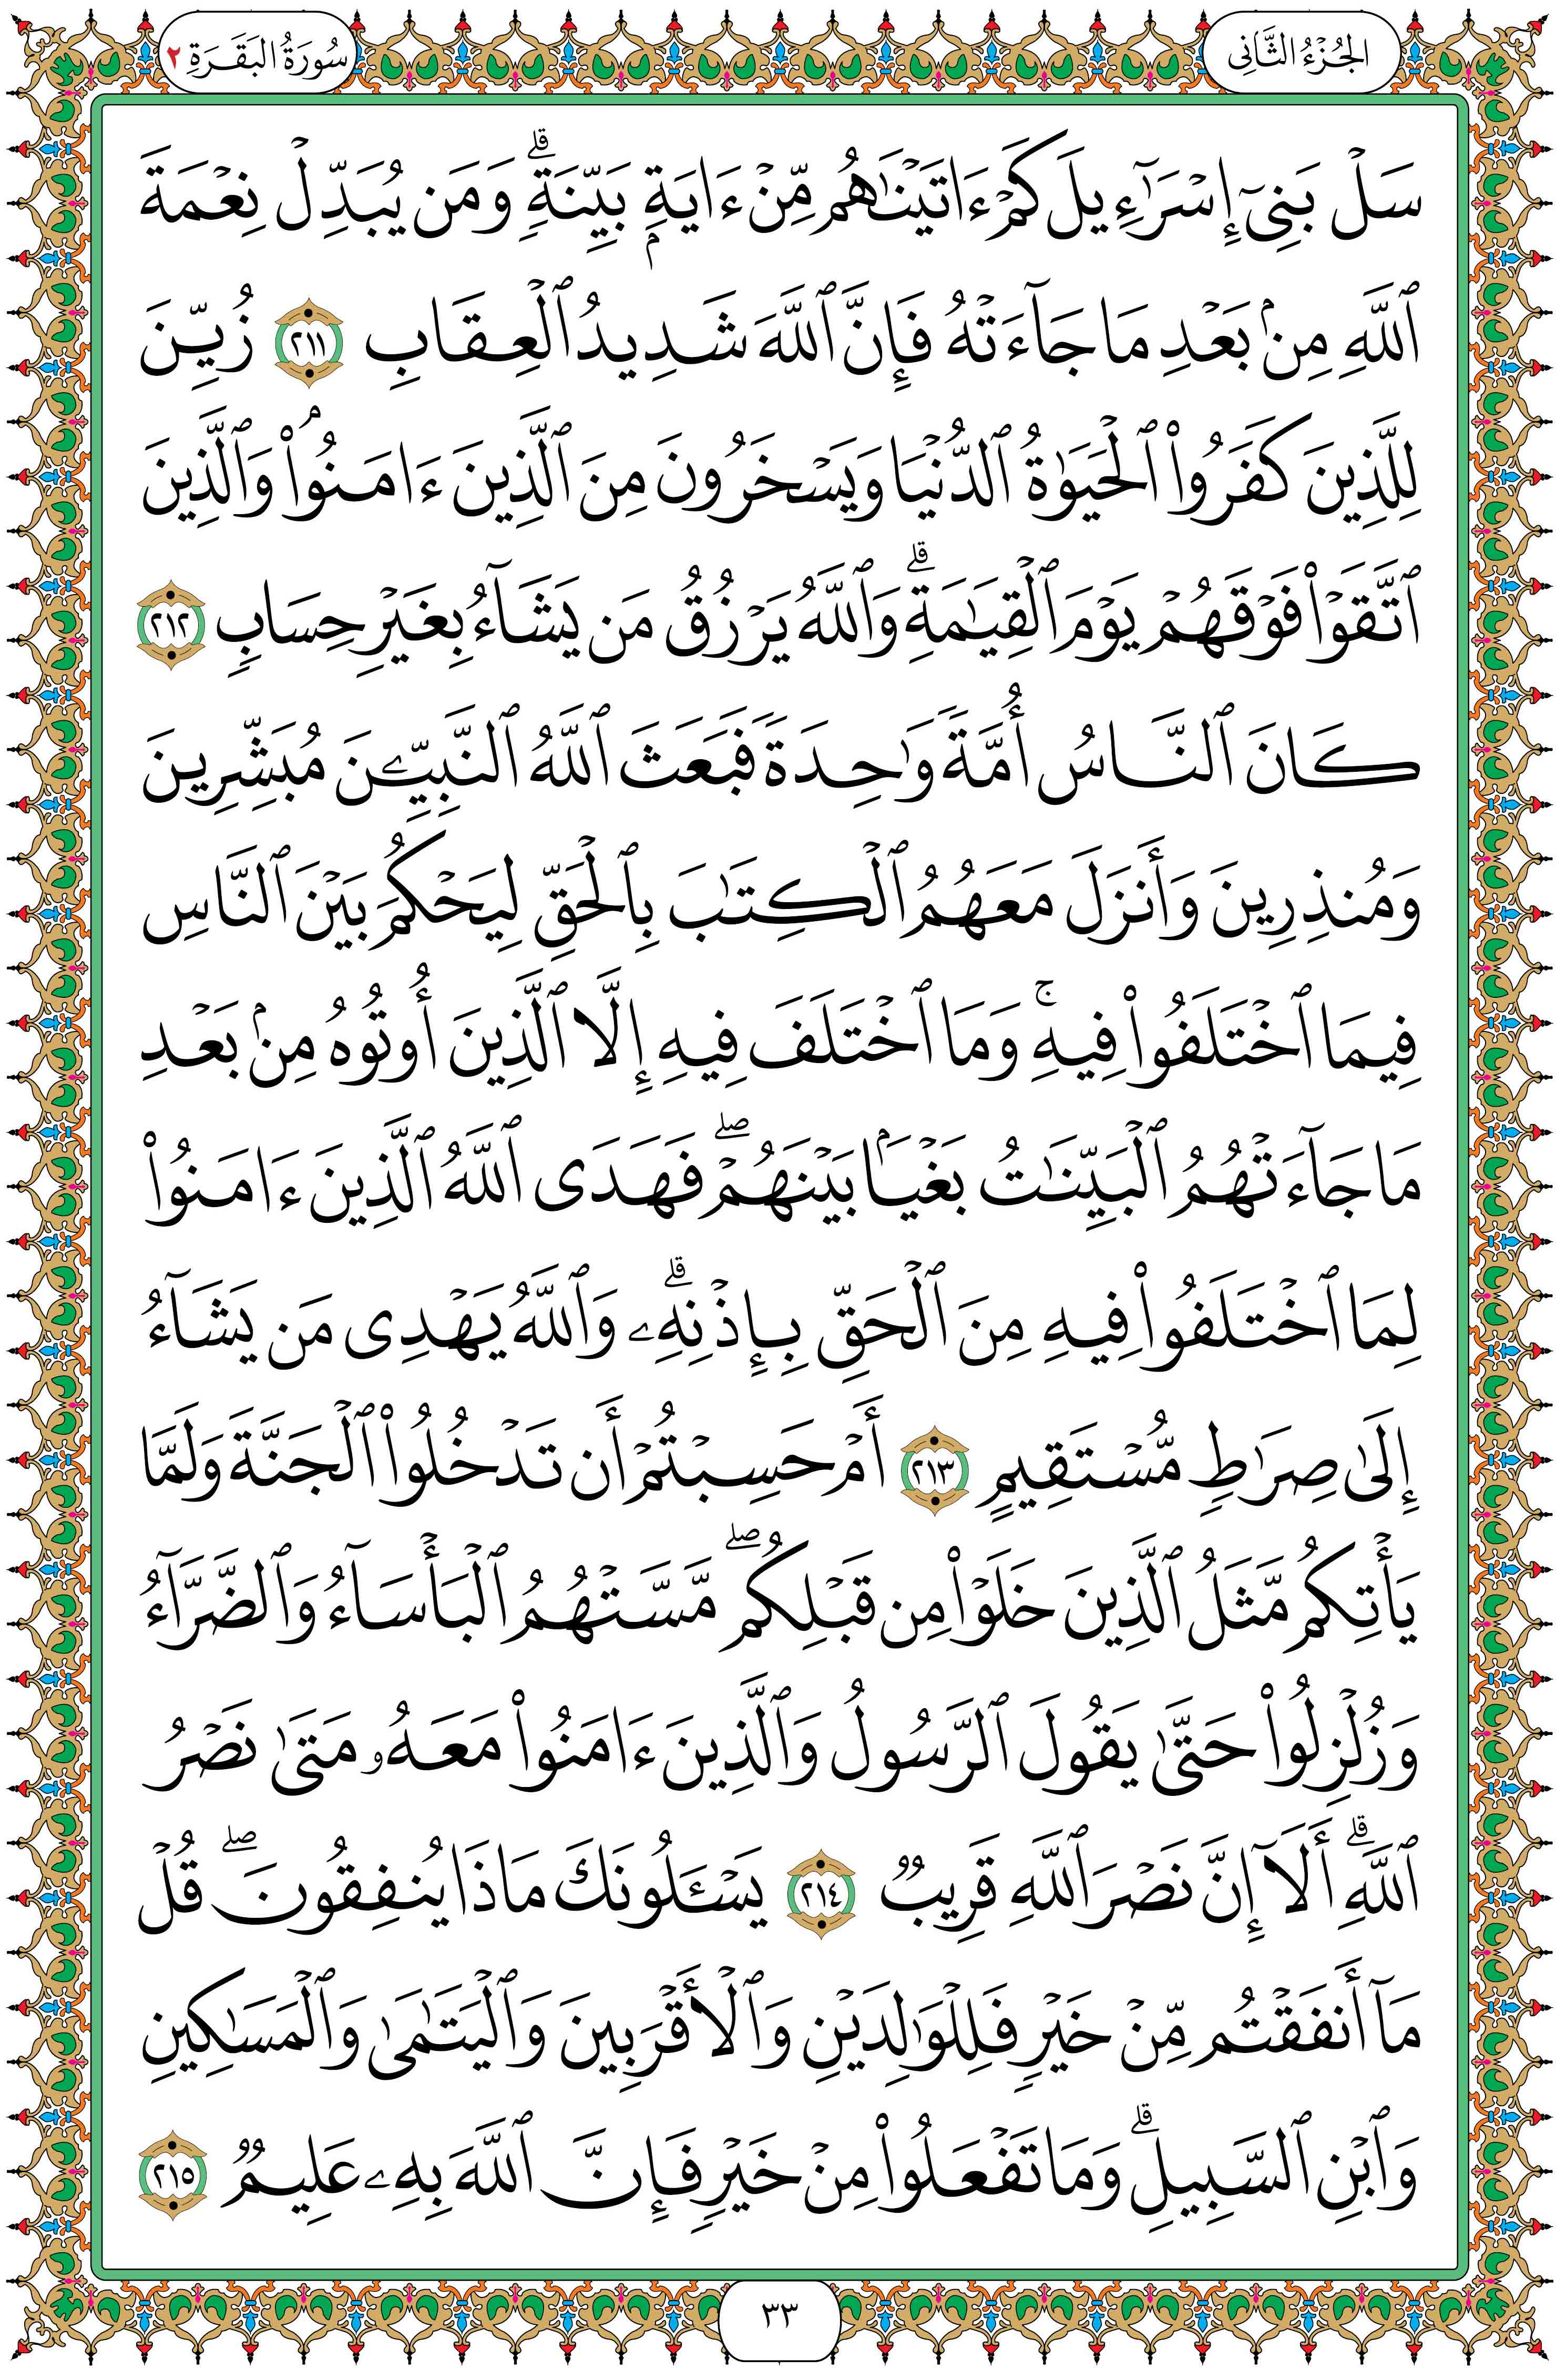 الجُزْءُ الثَّانِي
سُورَةُ البَقَرَةِ ٢
سَلْ بَنِىٓ إِسْرَٰٓءِيلَ كَمْ ءَاتَيْنَٰهُم مِّنْ ءَايَةِۭ بَيِّنَةٍۗ وَمَن يُبَدِّلْ نِعْمَةَ
ٱللَّهِ مِنۢ بَعْدِ مَا جَآءَتْهُ فَإِنَّ ٱللَّهَ شَدِيدُ ٱلْعِقَابِ ٢١١ زُيِّنَ
لِلَّذِينَ كَفَرُوا۟ ٱلْحَيَوٰةُ ٱلدُّنْيَا وَيَسْخَرُونَ مِنَ ٱلَّذِينَ ءَامَنُوا۟ۘ وَٱلَّذِينَ
ٱتَّقَوْا۟ فَوْقَهُمْ يَوْمَ ٱلْقِيَٰمَةِۗ وَٱللَّهُ يَرْزُقُ مَن يَشَآءُ بِغَيْرِ حِسَابٍ ٢١٢
كَانَ ٱلنَّاسُ أُمَّةً وَٰحِدَةً فَبَعَثَ ٱللَّهُ ٱلنَّبِيِّـۧنَ مُبَشِّرِينَ
وَمُنذِرِينَ وَأَنزَلَ مَعَهُمُ ٱلْكِتَٰبَ بِٱلْحَقِّ لِيَحْكُمَ بَيْنَ ٱلنَّاسِ
فِيمَا ٱخْتَلَفُوا۟ فِيهِۚ وَمَا ٱخْتَلَفَ فِيهِ إِلَّا ٱلَّذِينَ أُوتُوهُ مِنۢ بَعْدِ
مَا جَآءَتْهُمُ ٱلْبَيِّنَٰتُ بَغْيَۢا بَيْنَهُمْۖ فَهَدَى ٱللَّهُ ٱلَّذِينَ ءَامَنُوا۟
لِمَا ٱخْتَلَفُوا۟ فِيهِ مِنَ ٱلْحَقِّ بِإِذْنِهِۦۗ وَٱللَّهُ يَهْدِى مَن يَشَآءُ
إِلَىٰ صِرَٰطٍ مُّسْتَقِيمٍ ٢١٣ أَمْ حَسِبْتُمْ أَن تَدْخُلُوا۟ ٱلْجَنَّةَ وَلَمَّا
يَأْتِكُم مَّثَلُ ٱلَّذِينَ خَلَوْا۟ مِن قَبْلِكُمۖ مَّسَّتْهُمُ ٱلْبَأْسَآءُ وَٱلضَّرَّآءُ
وَزُلْزِلُوا۟ حَتَّىٰ يَقُولَ ٱلرَّسُولُ وَٱلَّذِينَ ءَامَنُوا۟ مَعَهُۥ مَتَىٰ نَصْرُ
ٱللَّهِۗ أَلَآ إِنَّ نَصْرَ ٱللَّهِ قَرِيبٌ ٢١٤ يَسْـَٔلُونَكَ مَاذَا يُنفِقُونَۖ قُلْ
مَآ أَنفَقْتُم مِّنْ خَيْرٍ فَلِلْوَٰلِدَيْنِ وَٱلْأَقْرَبِينَ وَٱلْيَتَٰمَىٰ وَٱلْمَسَٰكِينِ
وَٱبْنِ ٱلسَّبِيلِۗ وَمَا تَفْعَلُوا۟ مِنْ خَيْرٍ فَإِنَّ ٱللَّهَ بِهِۦ عَلِيمٌ ٢١٥
٣٣